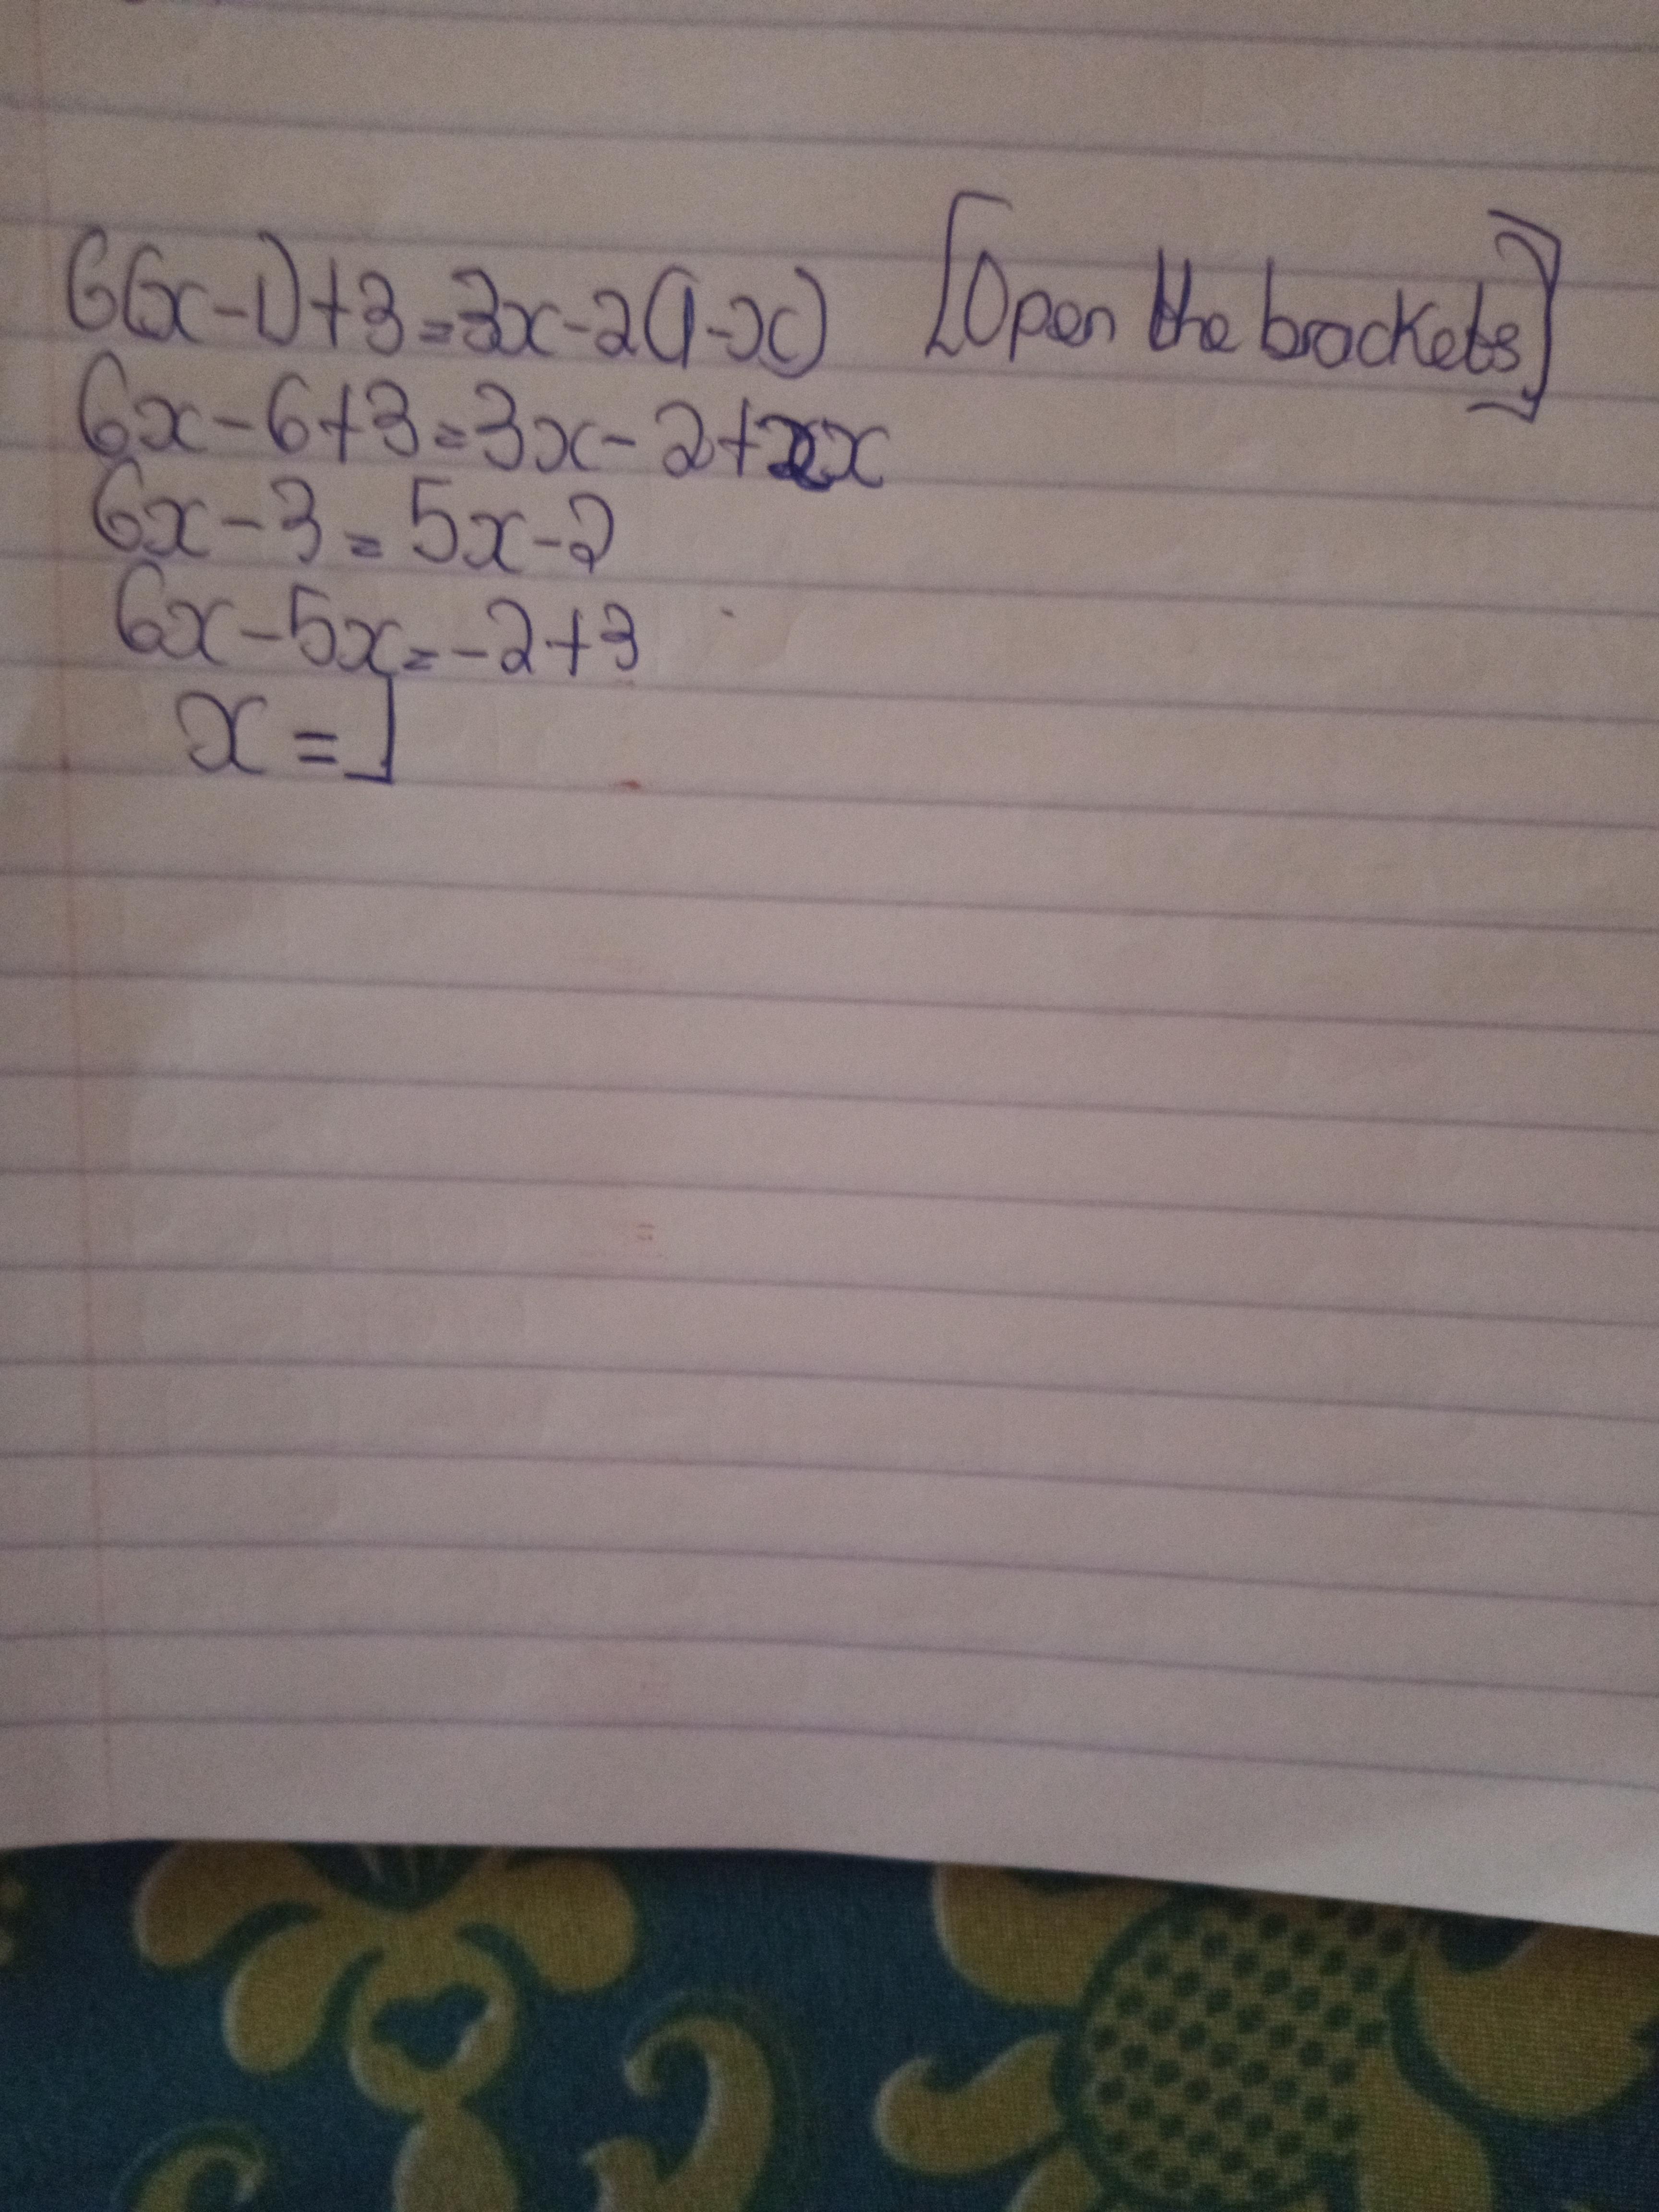 6(x-1)+3=3x-2(1-x) [Open the brackets]
6x-6+3=3x-2+2x
6x-3=5x-2
6x-5x=-2+3
x=1